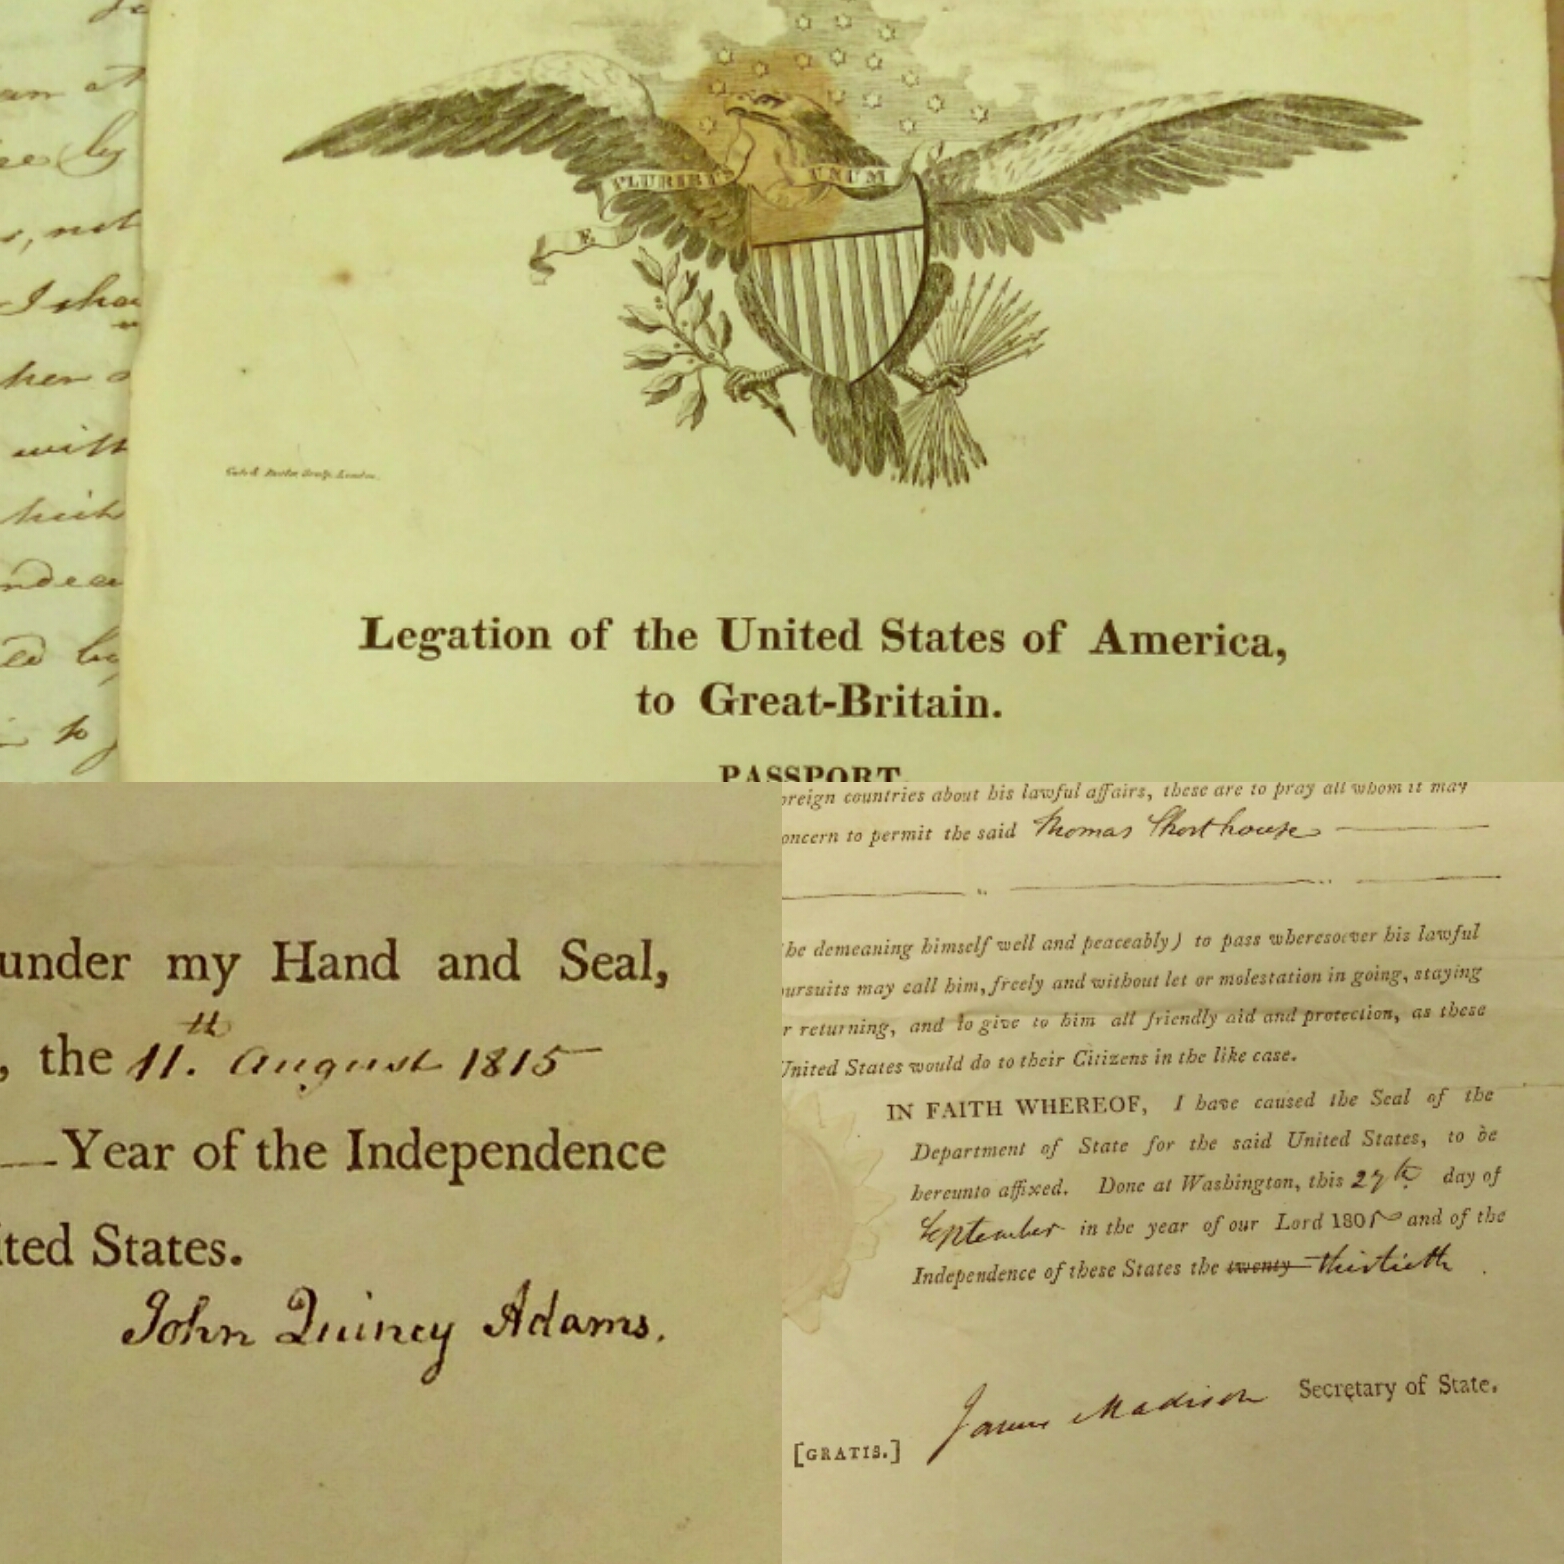 an at
by
s, not
I shou
her
with
hich
ndea
by
to
E PLURIBUS UNUM
Sculp. London.
Legation of the United States of America,
to Great-Britain.
PASSPORT.
under my Hand and Seal,
, the 11.th August 1815
Year of the Independence
ited States.
John Quincy Adams.
oreign countries about his lawful affairs, these are to pray all whom it may
oncern to permit the said Thomas Shorthouse
he demeaning himself well and peaceably) to pass wheresoever his lawful
ursuits may call him, freely and without let or molestation in going, staying
r returning, and to give to him all friendly aid and protection, as these
United States would do to their Citizens in the like case.
IN FAITH WHEREOF, I have caused the Seal of the
Department of State for the said United States, to be
hereunto affixed. Done at Washington, this 27th day of
September in the year of our Lord 1805 and of the
Independence of these States the twenty thirtieth
James Madison Secretary of State.
[GRATIS.]